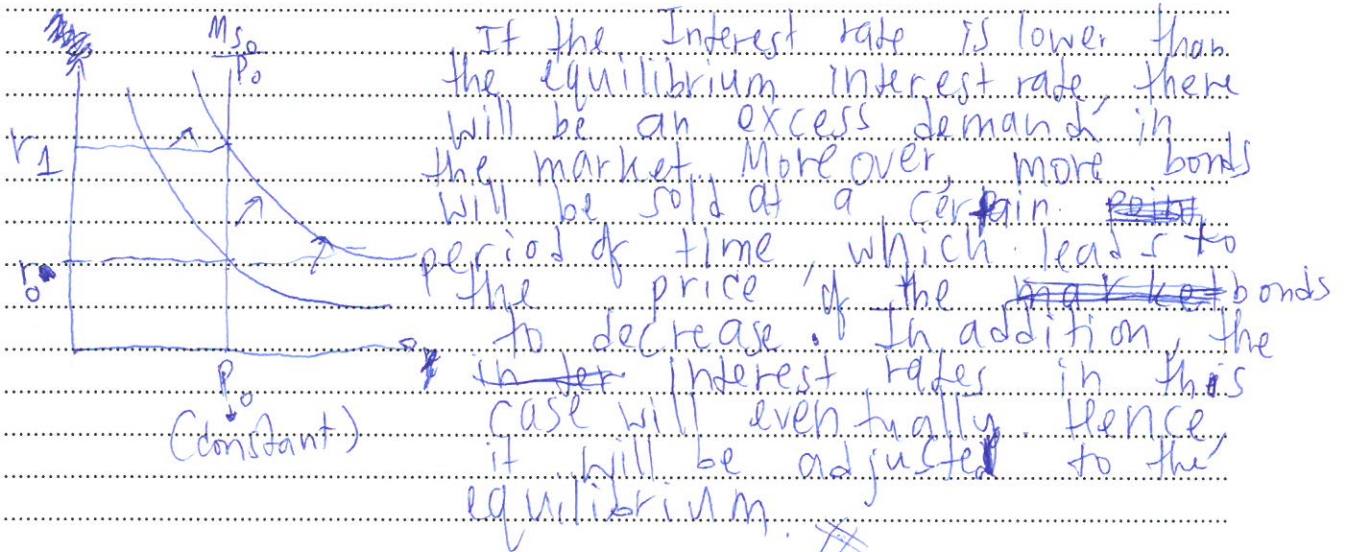 Ms₀
P₀
r₁
r₀
P₀
(constant)
If the Interest rate is lower than
the equilibrium interest rate, there
will be an excess demand in
the market. Moreover, more bonds
will be sold at a certain point
period of time, which leads to
the price of the market bonds
to decrease. In addition, the
inter interest rates in this
case will eventually. Hence,
it will be adjusted to the
equilibrium.